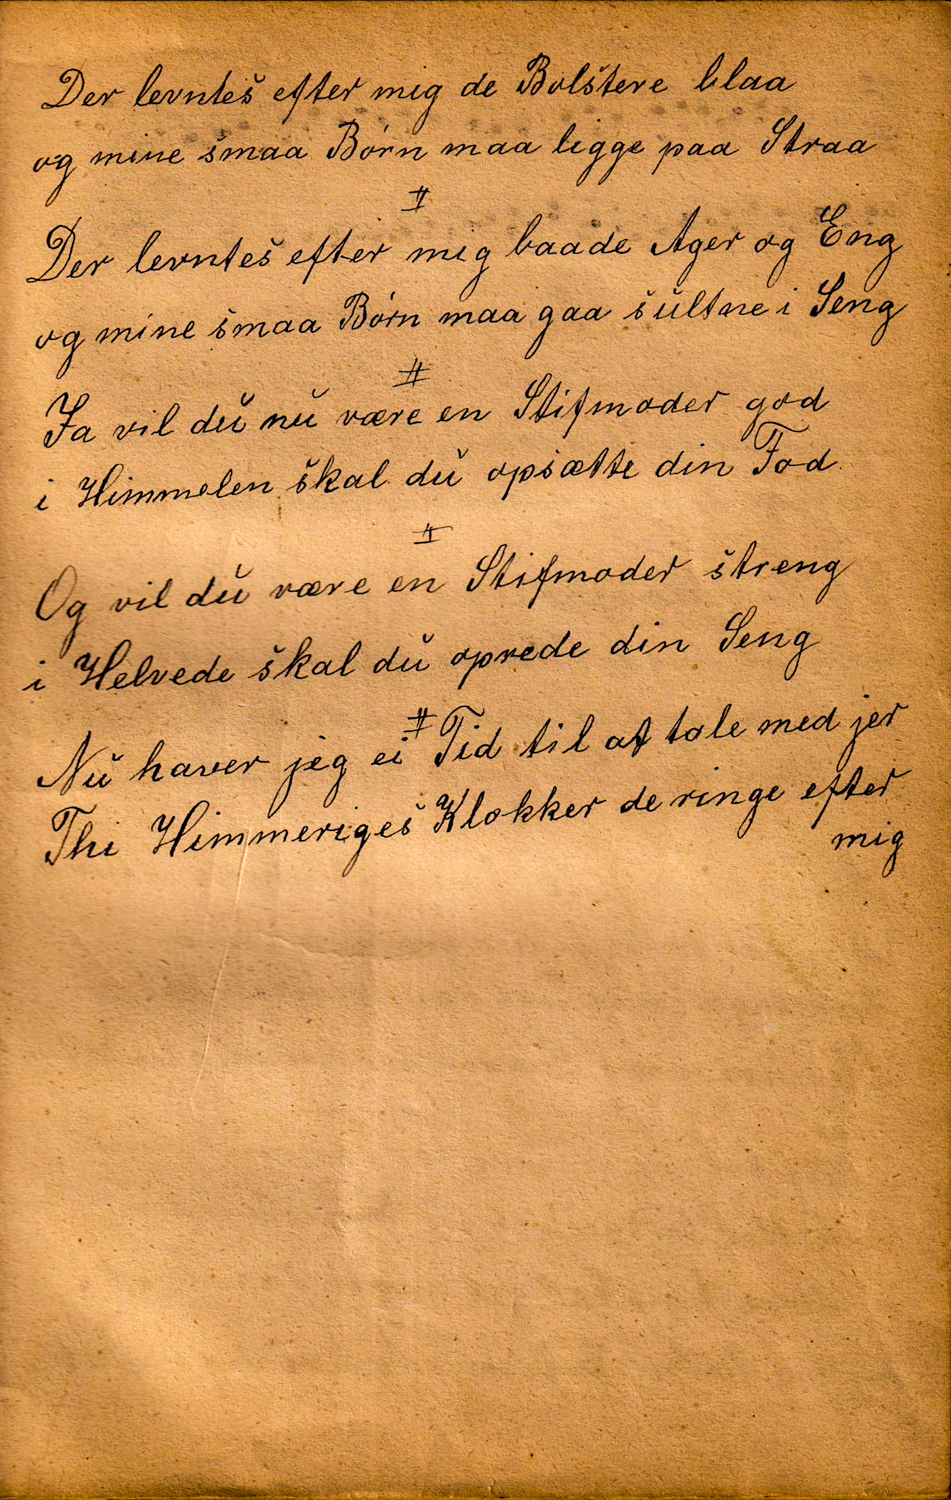 Der levntes efter mig de Bolstere blaa
og mine smaa Børn maa ligge paa Straa
#
Der levntes efter mig baade Ager og Eng
og mine smaa Børn maa gaa sultne i Seng
#
Ja vil du nu være en Stifmoder god
i Himmelen skal du opsætte din Fod
#
Og vil du være en Stifmoder streng
i Helvede skal du oprede din Seng
#
Nu haver jeg ei Tid til at tale med jer
Thi Himmeriges Klokker de ringe efter
mig